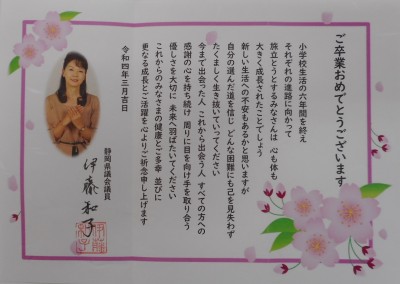 ご卒業おめでとうございます
小学校生活の六年間を終え
それぞれの進路に向かって
旅立とうとするみなさんは 心も体も
大きく成長されたことでしょう
新しい生活への不安もあるかと思いますが
自分の選んだ道を信じ どんな困難にも己を見失わず
たくましく生き抜いていってください
今まで出会った人 これから出会う人 すべての方への
感謝の心を持ち続け 周りに目を向け手を取り合う
優しさを大切に 未来へ羽ばたいてください
これからのみなさまの健康とご多幸 並びに
更なる成長とご活躍を心よりご祈念申し上げます
令和四年三月吉日
静岡県議会議員
伊藤和子